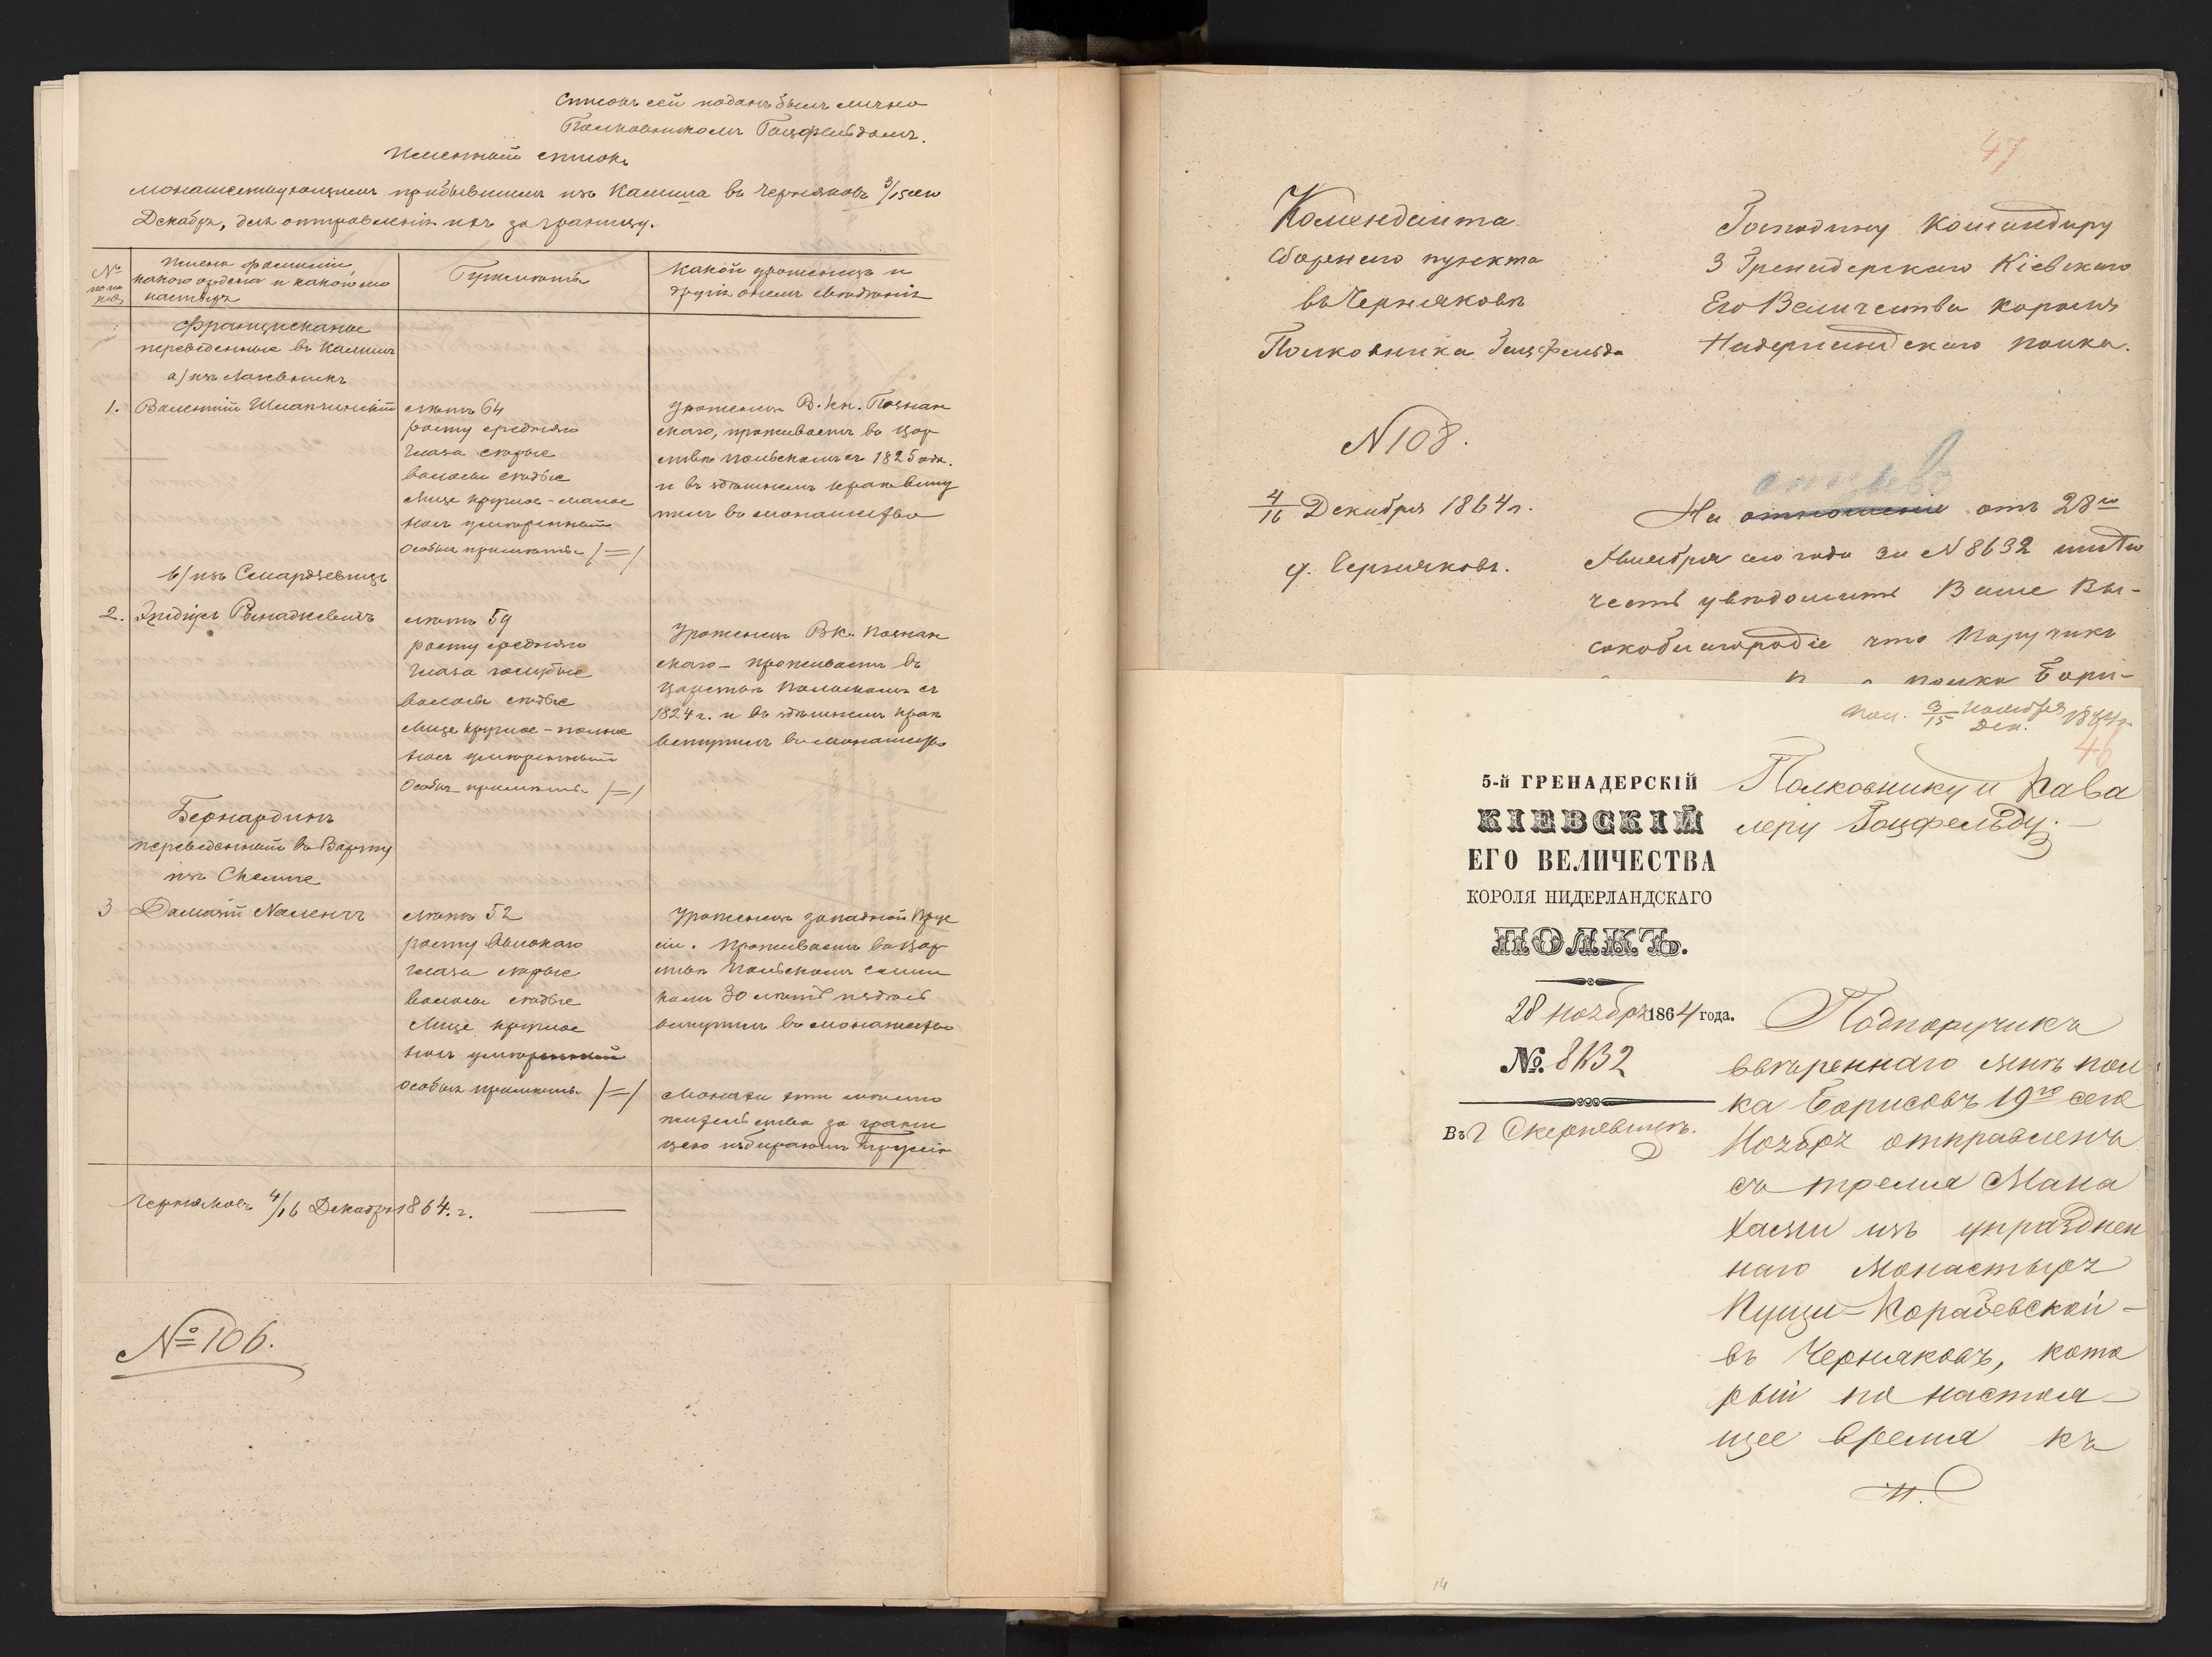 Списокъ сей поданъ былъ лично
Полковникомъ Гацфельдомъ.
Именный списокъ
монашествующимъ прибывшимъ изъ Калиша въ Черняковъ 3/15 сего
Декабря, для отправленія ихъ заграницу.
№
по по
ряд.
Имена фамиліи,
какого ордена и какого мо
настыря
Примѣты
Какой уроженецъ и
другія онемъ свѣдѣнія
Францискане
переведенные въ Калишъ
а) изъ Лагевникъ
1. Валентій Шлапчинскій
лѣтъ 64
росту средняго
глаза сѣрые
волосы сѣдые
Лице круглое - малое
носъ умѣренный
особыя примѣты /=/
уроженецъ В. Кн. Познан
скаго, проживаетъ въ Цар
ствѣ Польскомъ съ 1825 года.
и въ здѣшнемъ краѣ всту
пилъ въ монашество
б) изъ Смардзевицъ
2.
лѣтъ 59
росту средняго
глаза голубые
волосы сѣдые
Лице круглое - полное
носъ умѣренный
Особыя примѣты /=/
Уроженецъ В К. Познан
скаго - проживаетъ въ
Царствѣ Польскомъ съ
1824 г. и въ здѣшнемъ краѣ
вступилъ въ монашество
Бернардинъ
переведенный въ Варту
изъ
3
лѣтъ 52
росту высокаго
глаза сѣрые
волосы сѣдые
Лице круглое
носъ умѣренный
особыя примѣты /=/
Уроженецъ западной Прус
сіи. Проживаетъ въ Цар
ствѣ Польскомъ слиш
комъ 30 лѣтъ и здѣсь
вступилъ въ монашество
Монахи эти мѣсто
жительства за грани
цею избираютъ Пруссію
Черняковъ 4/16 Декабря 1864. г.
№ 106.
47
Коменданта
Сборнаго пункта
въ Черняковѣ
Полковника Гацфельда
Господину Командиру
3 Гренадерскаго Кіевскаго
Его Величества Короля
Нидерландскаго полка.
N 108.
4/16 Декабря 1864 г.
д. Черняковъ.
отзывъ
На отношеніе отъ 28го
Ноября сего года за N 8632 имѣю
честь увѣдомить Ваше Вы-
сокоблагородіе что Поручикъ
полка Бори-
Пол. 3/15 Ноября 1864 г.
Дек.
46
5-й ГРЕНАДЕРСКІЙ
КІЕВСКІЙ
ЕГО ВЕЛИЧЕСТВА
КОРОЛЯ НИДЕРЛАНДСКАГО
ПОЛКЪ.
28 Ноября 1864 года.
№ 8632
Въ г Скерневицахъ.
Полковнику и Кава
леру Гацфельду.
Подпоручикъ
ввѣреннаго мнѣ пол
ка Борисовъ 19го сего
Ноября отправленъ
съ тремя Мона
хами изъ упразднен
наго Монастыря
Пущи-Корабевской -
въ Черняковъ, кото
рый по настоя-
щее время къ
14